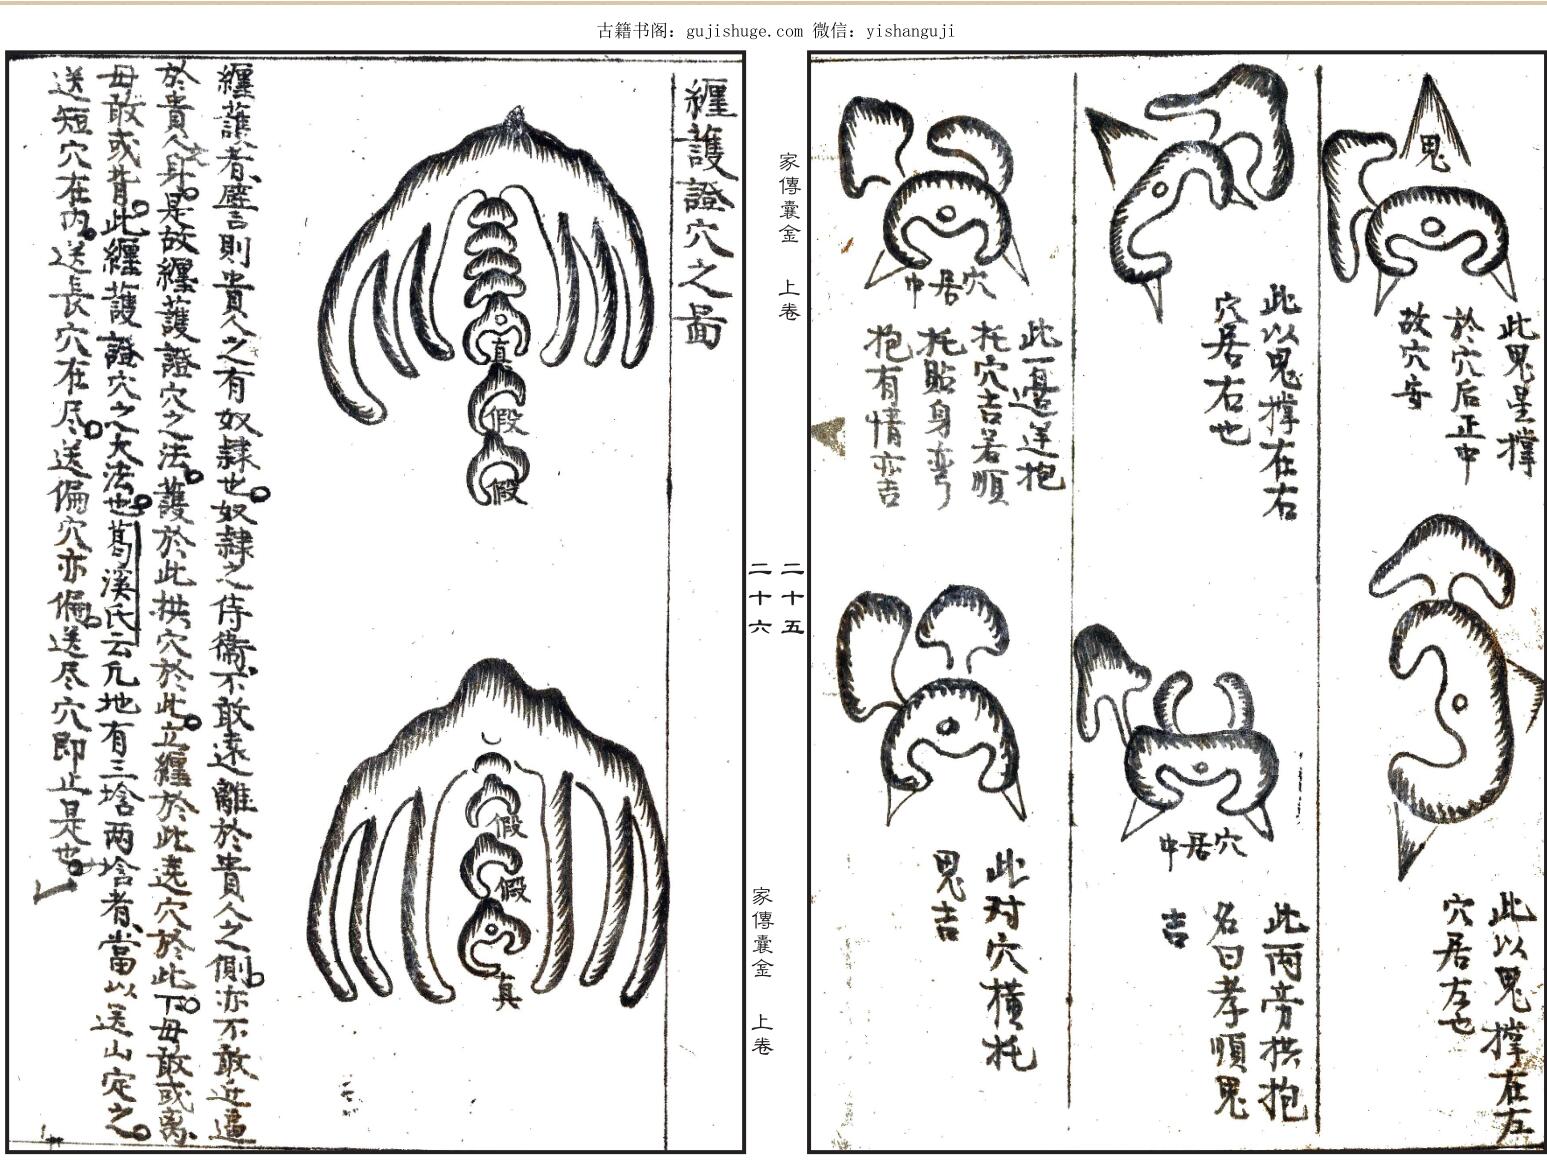 古籍书阁：gujishuge.com 微信：yishanguji
鬼
此鬼星撑
於穴后正中
故穴安
此以鬼撑在左
穴居左也
此以鬼撑在右
穴居右也
穴居中
此两旁拱抱
名曰孝順鬼
吉
穴居中
此一邉逆抱
托穴吉若順
托貼身弯
抱有情亦吉
此对穴橫托
鬼吉
家傳囊金 上卷
二十五
二十六
家傳囊金 上卷
纒護證穴之啚
真
假
假
假
假
真
纒護者譬則貴人之有奴隸也奴隸之侍衛不敢遠離於貴人之側亦不敢近逼
於貴人身是故纒護證穴之法護於此拱穴於此立纒於此遶穴於此下毋敢或离
毋敢或背此纒護證穴之大法也葛溪氏云凢地有三墖两墖者當以送山定之
送短穴在内送長穴在尽送偏穴亦偏送尽穴即止是也